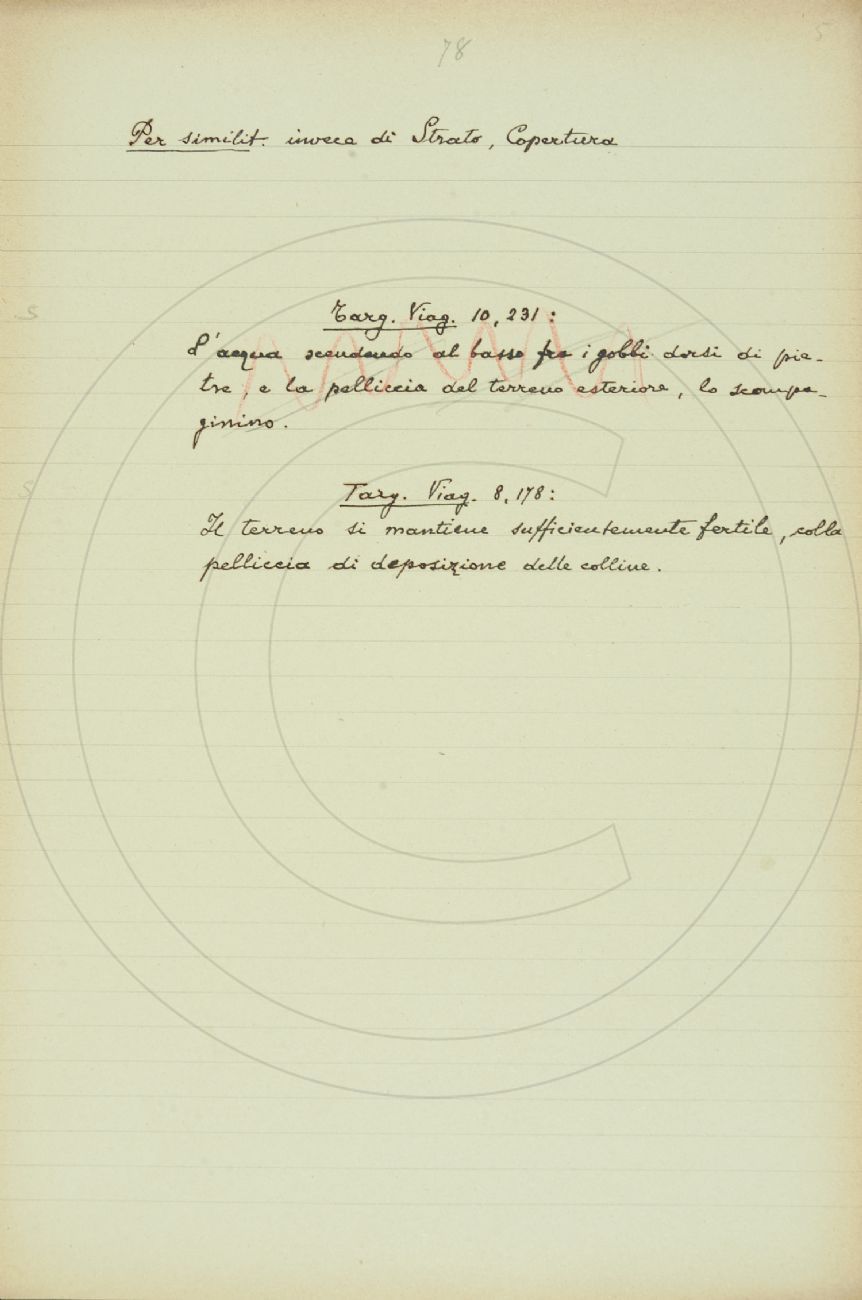 78
5
Per similit. invece di Strato, Copertura
S
Targ. Viag. 10, 231:
L'acqua scendendo al basso fra i gobbi dorsi di pie-
tre, e la pelliccia del terreno esteriore, lo scompa-
ginino.
S
Targ. Viag. 8, 178:
Il terreno si mantiene sufficientemente fertile, colla
pelliccia di deposizione delle colline.